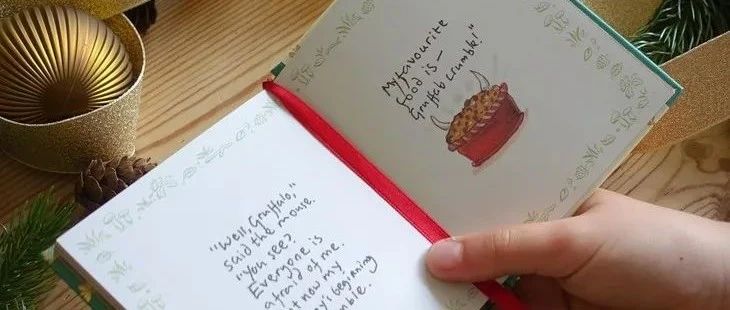 "Well, Gruffalo,"
said the mouse.
"You see?
Everyone is
afraid of me.
t now my
y's beginning
mble.
My favourite
food is –
Gruffalo crumble!"